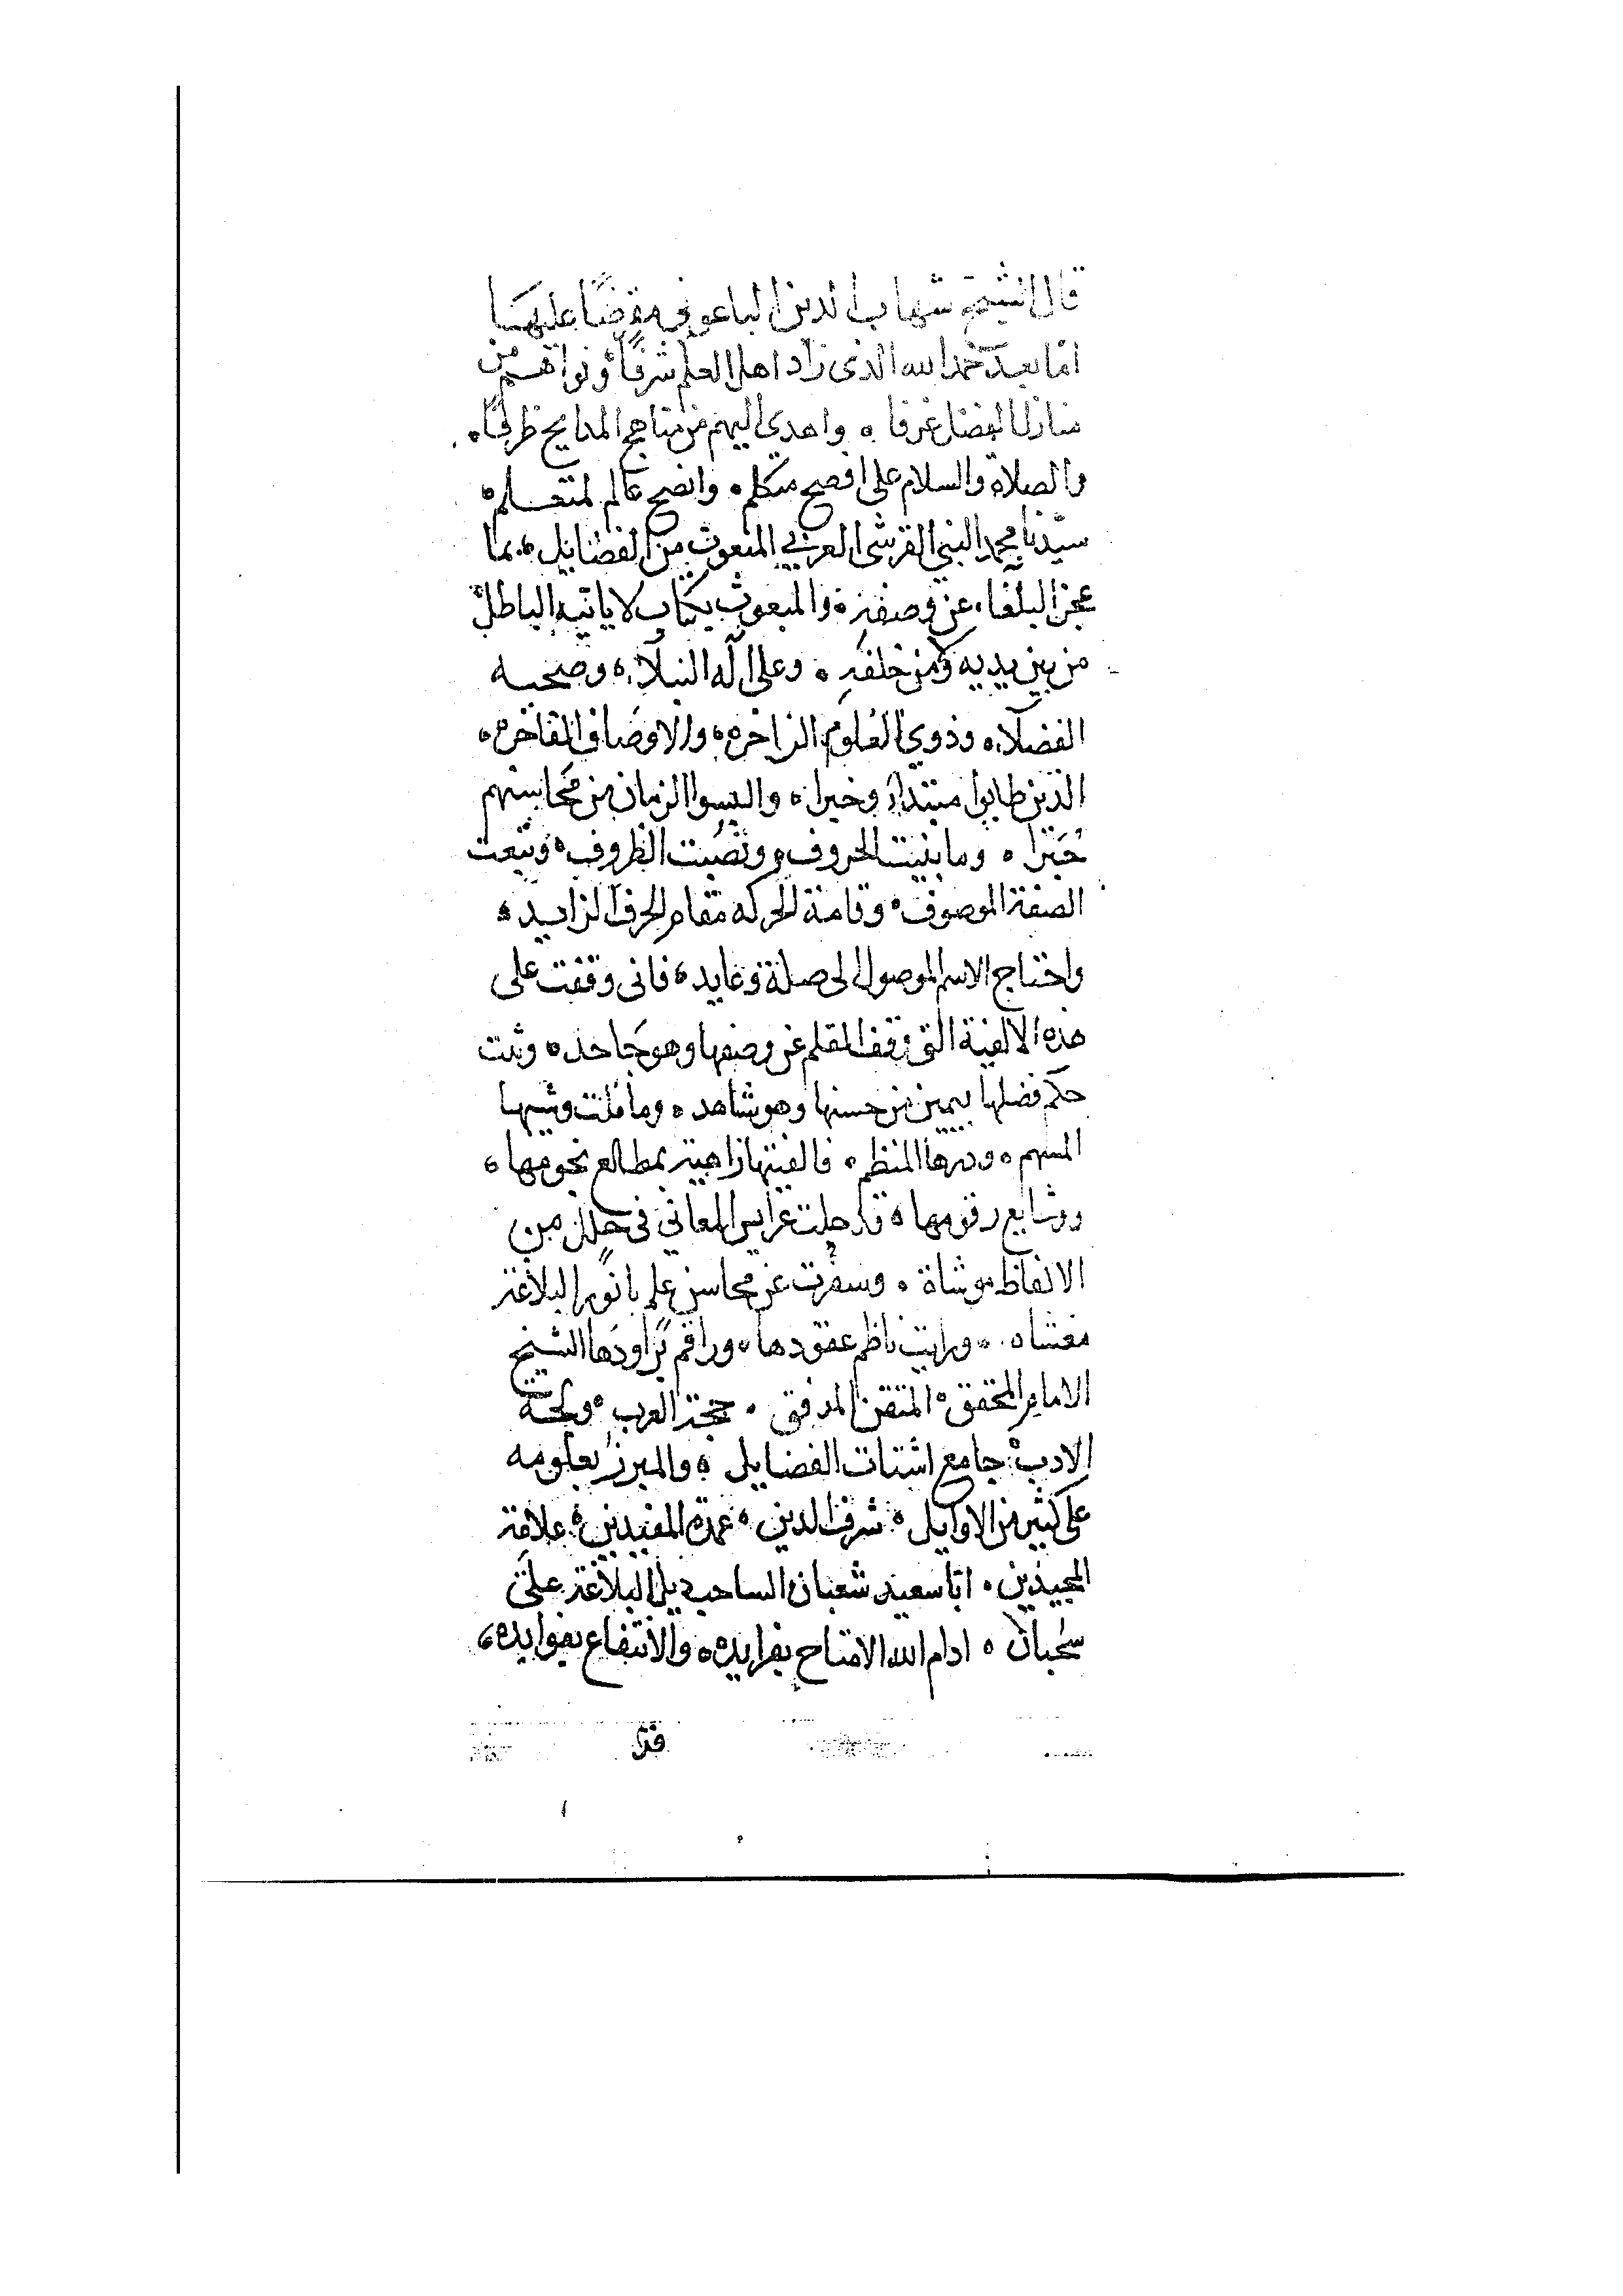 قال الشيخ شهاب الدين الباعوني مقرضًا عليها
امّا بعد حمد الله الذى زاد اهل العلم شرفًا وبواهم من
منازل الفضل غرفا ه واهدي اليهم من مناهج المدايح طرفًا ه
والصلاة والسلام على افصح متكلم ه وانصح عالم لمتعلم ه
سيّدنا محمد النبي القرشى العربي المنعوت من الفضايل ه بما
عجز البلغاء عن وصفه ه والمبعوث بكتاب لا ياتيه الباطل
من بين يديه ولا من خلفه ه وعلى آله النبلاء ه وصحبه
الفضلآء ه وذوي العلوم الزاخره ه والاوصاف الفاخره ه
الذين طابوا مبتداء وخبرا ه والبسوا الزمان من محاسنهم
حبرا ه وما بنيت الحروف ه ونصبت الظروف ه وتبعت
الصفة الموصوف ه وقامة الحركه مقام الحرف الزايد ه
واحتاج الاسم الموصول الى صلة وعايد ه فانى وقفت على
هذه الالفية التى وقف القلم عن وصفها وهو جاحد ه وثبت
حكم فضلها بيمين من حسنها وهو شاهد ه وماملت وشيها
المسهم ه ودرها المنظم ه فالفيتها زاهية بمطالع نجومها ه
ووشايع رقومها ه قد جليت عرايس المعاني فى حلل من
الالفاظ موشاة ه وسفرت عن محاسن على بانوار البلاغة
مغشاه ه ورايت ناظم عقودها ه وراقم برودها الشيخ
الامام المحقق ه المتقن المدقق ه حجة العرب ه ولجة
الادب ه جامع اشتات الفضايل ه والمبرز بعلومه
على كثير من الاوايل ه شرف الدين ه عمدة المفيدين ه علامة
المجيدين ه ابا سعيد شعبان الساحب ذيل البلاغة على
سحبان ه ادام الله الامتاح بفرايده ه والانتفاع بفوايده ه